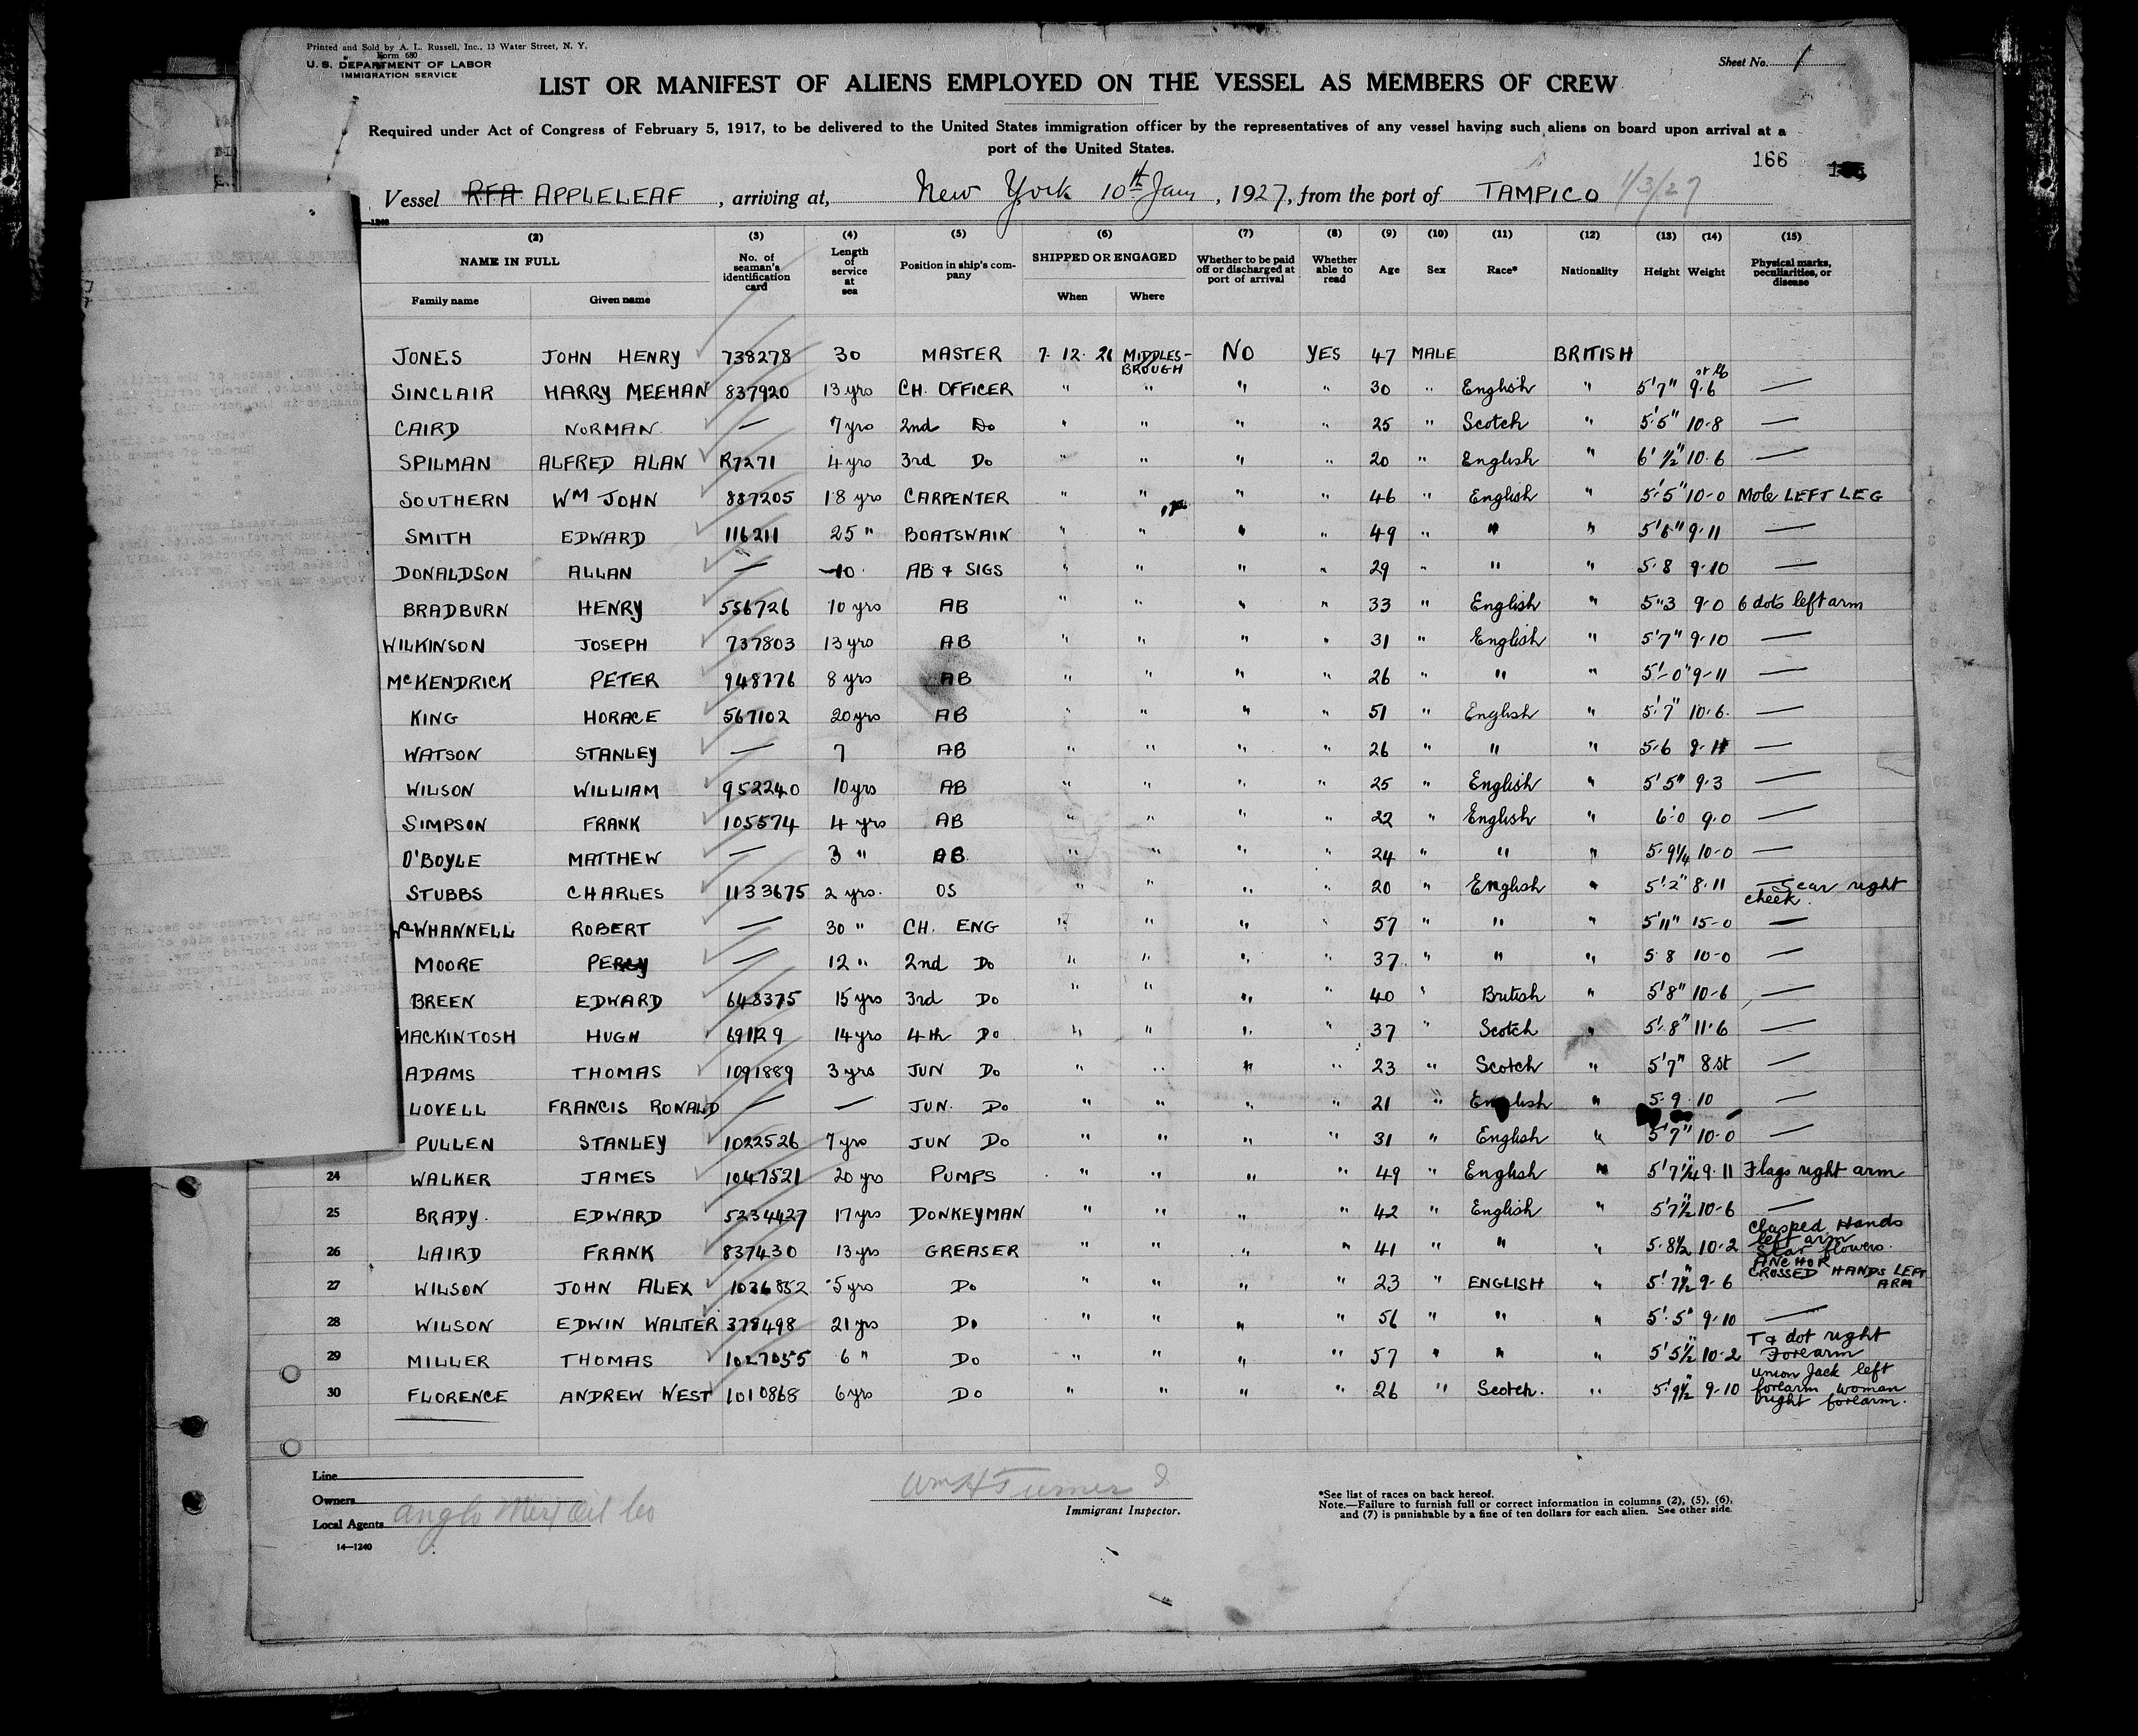 Printed and Sold by A. L. Russell, Inc., 13 Water Street, N. Y.
Form 680
U. S. DEPARTMENT OF LABOR
IMMIGRATION SERVICE
Sheet No. 1
LIST OR MANIFEST OF ALIENS EMPLOYED ON THE VESSEL AS MEMBERS OF CREW
Required under Act of Congress of February 5, 1917, to be delivered to the United States immigration officer by the representatives of any vessel having such aliens on board upon arrival at a
port of the United States.
166
Vessel RFA APPLELEAF, arriving at, New York 10th Jany, 1927, from the port of TAMPICO 1/3/27
(2) (3) (4) (5) (6) (7) (8) (9) (10) (11) (12) (13) (14) (15)
NAME IN FULL No. of seaman's identification card Length of service at sea Position in ship's company SHIPPED OR ENGAGED Whether to be paid off or discharged at port of arrival Whether able to read Age Sex Race* Nationality Height Weight Physical marks, peculiarities, or disease
Family name Given name When Where
JONES JOHN HENRY 738278 30 MASTER 7. 12. 26 MIDDLES-BROUGH NO YES 47 MALE BRITISH
SINCLAIR HARRY MEEHAN 837920 13 yrs CH. OFFICER " " " " 30 " English " 5'7" st lb 9.6 —
CAIRD NORMAN — 7 yrs 2nd Do " " " " 25 " Scotch " 5'5" 10-8 —
SPILMAN ALFRED ALAN R7271 4 yrs 3rd Do " " " " 20 " English " 6' ½" 10.6 —
SOUTHERN WM JOHN 887205 18 yrs CARPENTER " " " " 46 " English " 5'5" 10-0 Mole LEFT LEG
SMITH EDWARD 116211 25 " BOATSWAIN " " " " 49 " " " 5'6" 9.11 —
DONALDSON ALLAN — 10 AB & SIGS " " " " 29 " " " 5.8 9.10 —
BRADBURN HENRY 556726 10 yrs AB " " " " 33 " English " 5"3 9.0 6 dots left arm
WILKINSON JOSEPH 737803 13 yrs AB " " " " 31 " English " 5'7" 9.10 —
McKENDRICK PETER 948776 8 yrs AB " " " " 26 " " " 5'-0" 9-11 —
KING HORACE 567102 20 yrs AB " " " " 51 " English " 5'7" 10.6. —
WATSON STANLEY — 7 AB " " " " 26 " " " 5.6 9.11 —
WILSON WILLIAM 952240 10 yrs AB " " " " 25 " English " 5'5" 9.3 —
SIMPSON FRANK 105574 4 yrs AB " " " " 22 " English " 6'0 9.0 —
O'BOYLE MATTHEW — 3 " AB " " " " 24 " " " 5.9¼ 10-0 —
STUBBS CHARLES 1133675 2 yrs. OS " " " " 20 " English " 5'2" 8.11 Scar right cheek.
McWHANNELL ROBERT — 30 " CH. ENG " " " " 57 " " " 5'11" 15-0 —
MOORE PERCY — 12 " 2nd Do " " " " 37 " " " 5 8 10-0 —
BREEN EDWARD 648375 15 yrs 3rd Do " " " " 40 " British " 5'8" 10-6 —
MACKINTOSH HUGH 691129 14 yrs 4th Do " " " " 37 " Scotch " 5'.8" 11.6 —
ADAMS THOMAS 1091889 3 yrs JUN Do " " " " 23 " Scotch " 5'7" 8 st —
LOVELL FRANCIS RONALD — — JUN. Do " " " " 21 " English " 5.9 10 —
PULLEN STANLEY 1022526 7 yrs JUN Do " " " " 31 " English " 5'7" 10-0 —
24 WALKER JAMES 1047521 20 yrs PUMPS " " " " 49 " English " 5'7¼" 9.11 Flags right arm
25 BRADY. EDWARD 5234427 17 yrs DONKEYMAN " " " " 42 " English " 5'7½" 10-6 —
26 LAIRD FRANK 837430 13 yrs GREASER " " " " 41 " " " 5.8½ 10.2 Clasped Hands left arm Star flowers.
27 WILSON JOHN ALEX 1036852 5 yrs Do " " " " 23 " ENGLISH " 5'7½" 9-6 ANCHOR CROSSED HANDS LEFT ARM
28 WILSON EDWIN WALTER 378498 21 yrs Do " " " " 56 " " " 5'.5" 9.10 —
29 MILLER THOMAS 1027055 6 " Do " " " " 57 " " " 5'5½" 10.2 T & dot right Forearm
30 FLORENCE ANDREW WEST 1010868 6 yrs Do " " " " 26 " Scotch. " 5'9½" 9-10 Union Jack left forearm woman right forearm.
Line
Owners
Local Agents Anglo Mex Oil Co
Wm H Turner
Immigrant Inspector.
*See list of races on back hereof.
Note.—Failure to furnish full or correct information in columns (2), (5), (6),
and (7) is punishable by a fine of ten dollars for each alien. See other side.
14—1240